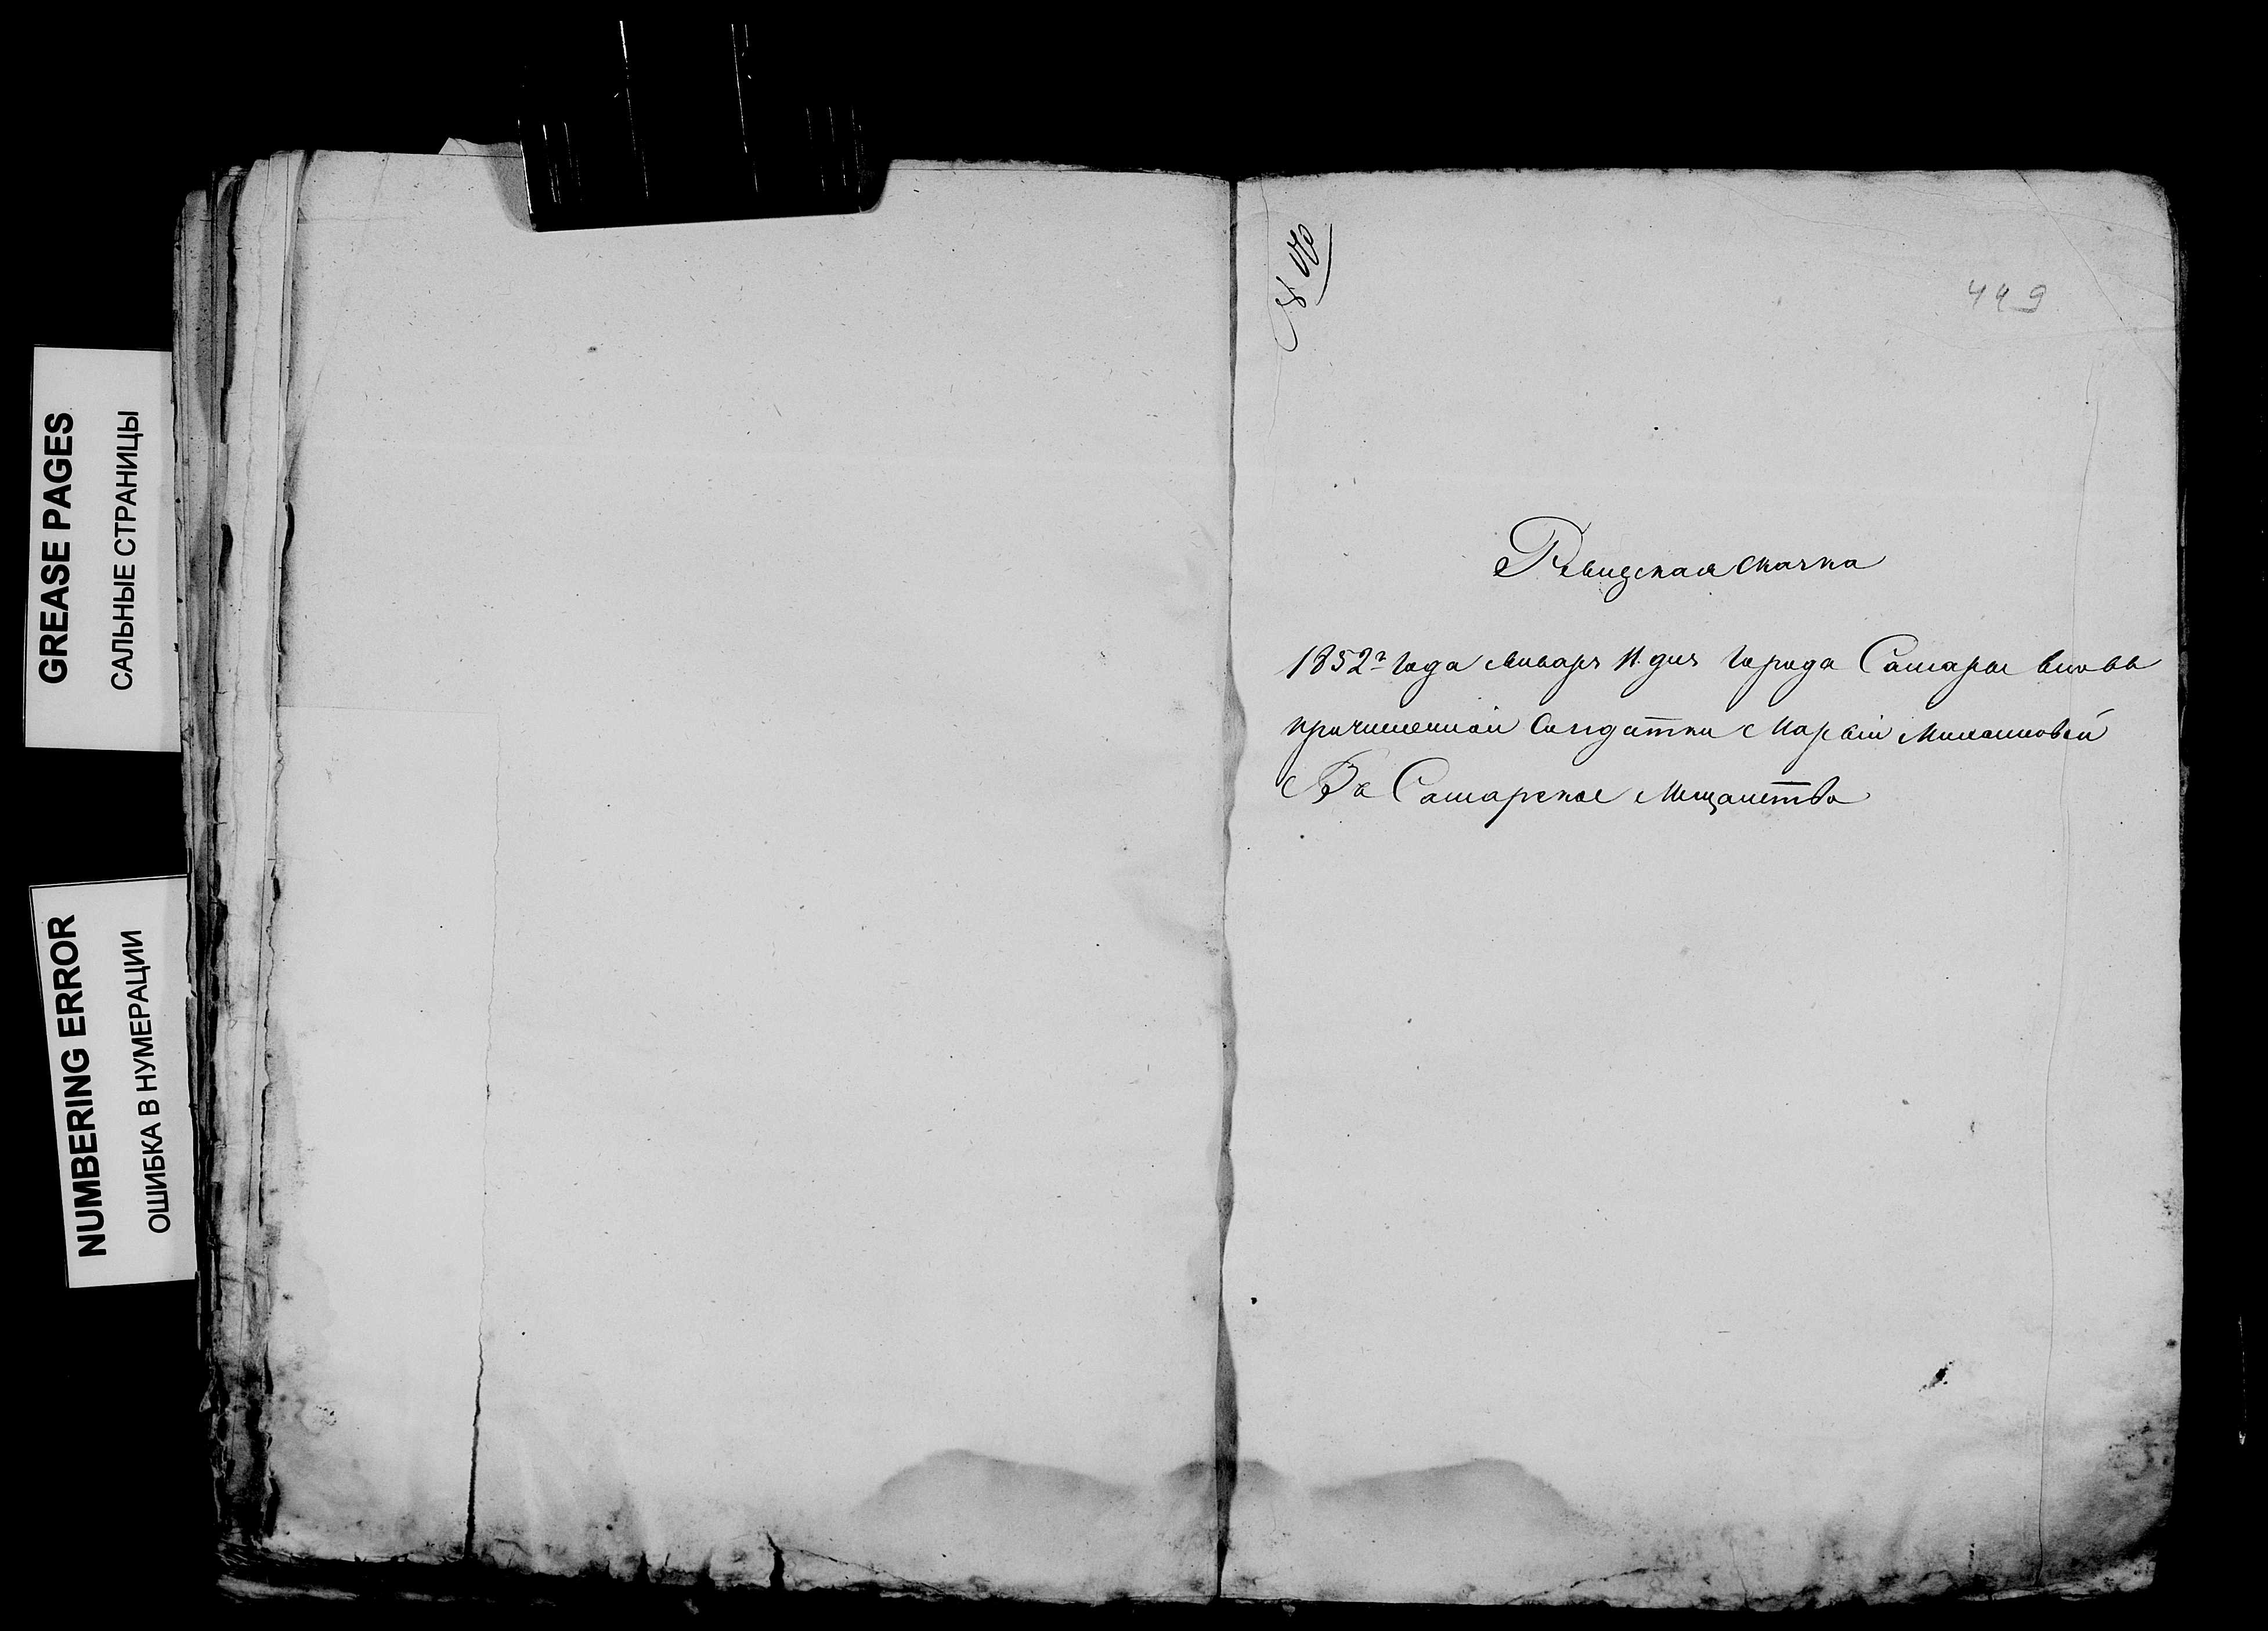 GREASE PAGES
САЛЬНЫЕ СТРАНИЦЫ
NUMBERING ERROR
ОШИБКА В НУМЕРАЦИИ
449
Ревизская скачка
1852г года Января 11 дня города Самары вновь
причисленной Солдатки Марьи
Въ Самарское Мещанство